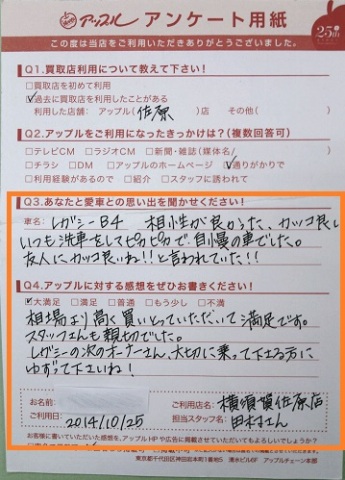 アップル アンケート用紙
25th
この度は当店をご利用いただきありがとうございました。
Q1.買取店利用について教えて下さい!
□買取店を初めて利用
☑過去に買取店を利用したことがある
利用した店舗: アップル(佐原)店 その他( )
Q2.アップルをご利用になったきっかけは?(複数回答可)
□テレビCM □ラジオCM □新聞・雑誌(媒体名/ )
□チラシ □DM □アップルのホームページ ☑通りがかりで
□利用経験があるので □紹介 □スタッフに誘われて
Q3.あなたと愛車との思い出を聞かせください!
車名: レガシーB4 相性が良かった、カッコ良し
いつも洗車をしてピカピカで自慢の車でした。
友人にカッコ良いね!!と言われていた!!
Q4.アップルに対する感想をぜひお書きください!
☑大満足 □満足 □普通 □もう少し □不満
相場より高く買いとっていただいて満足です。
スタッフさんも親切でした。
レガシーの次のオーナーさん、大切に乗って下さる方に
ゆずって下さいね!
お名前:
ご利用日: 2014/10/25
ご利用店名: 横須賀佐原店
担当スタッフ名: 田村さん
お客様に書いていただいた感想を、アップルHPや広告に掲載させていただいてもよろしいでしょうか?
東京都千代田区神田岩本町1番地5 清水ビル6F アップルチェーン本部